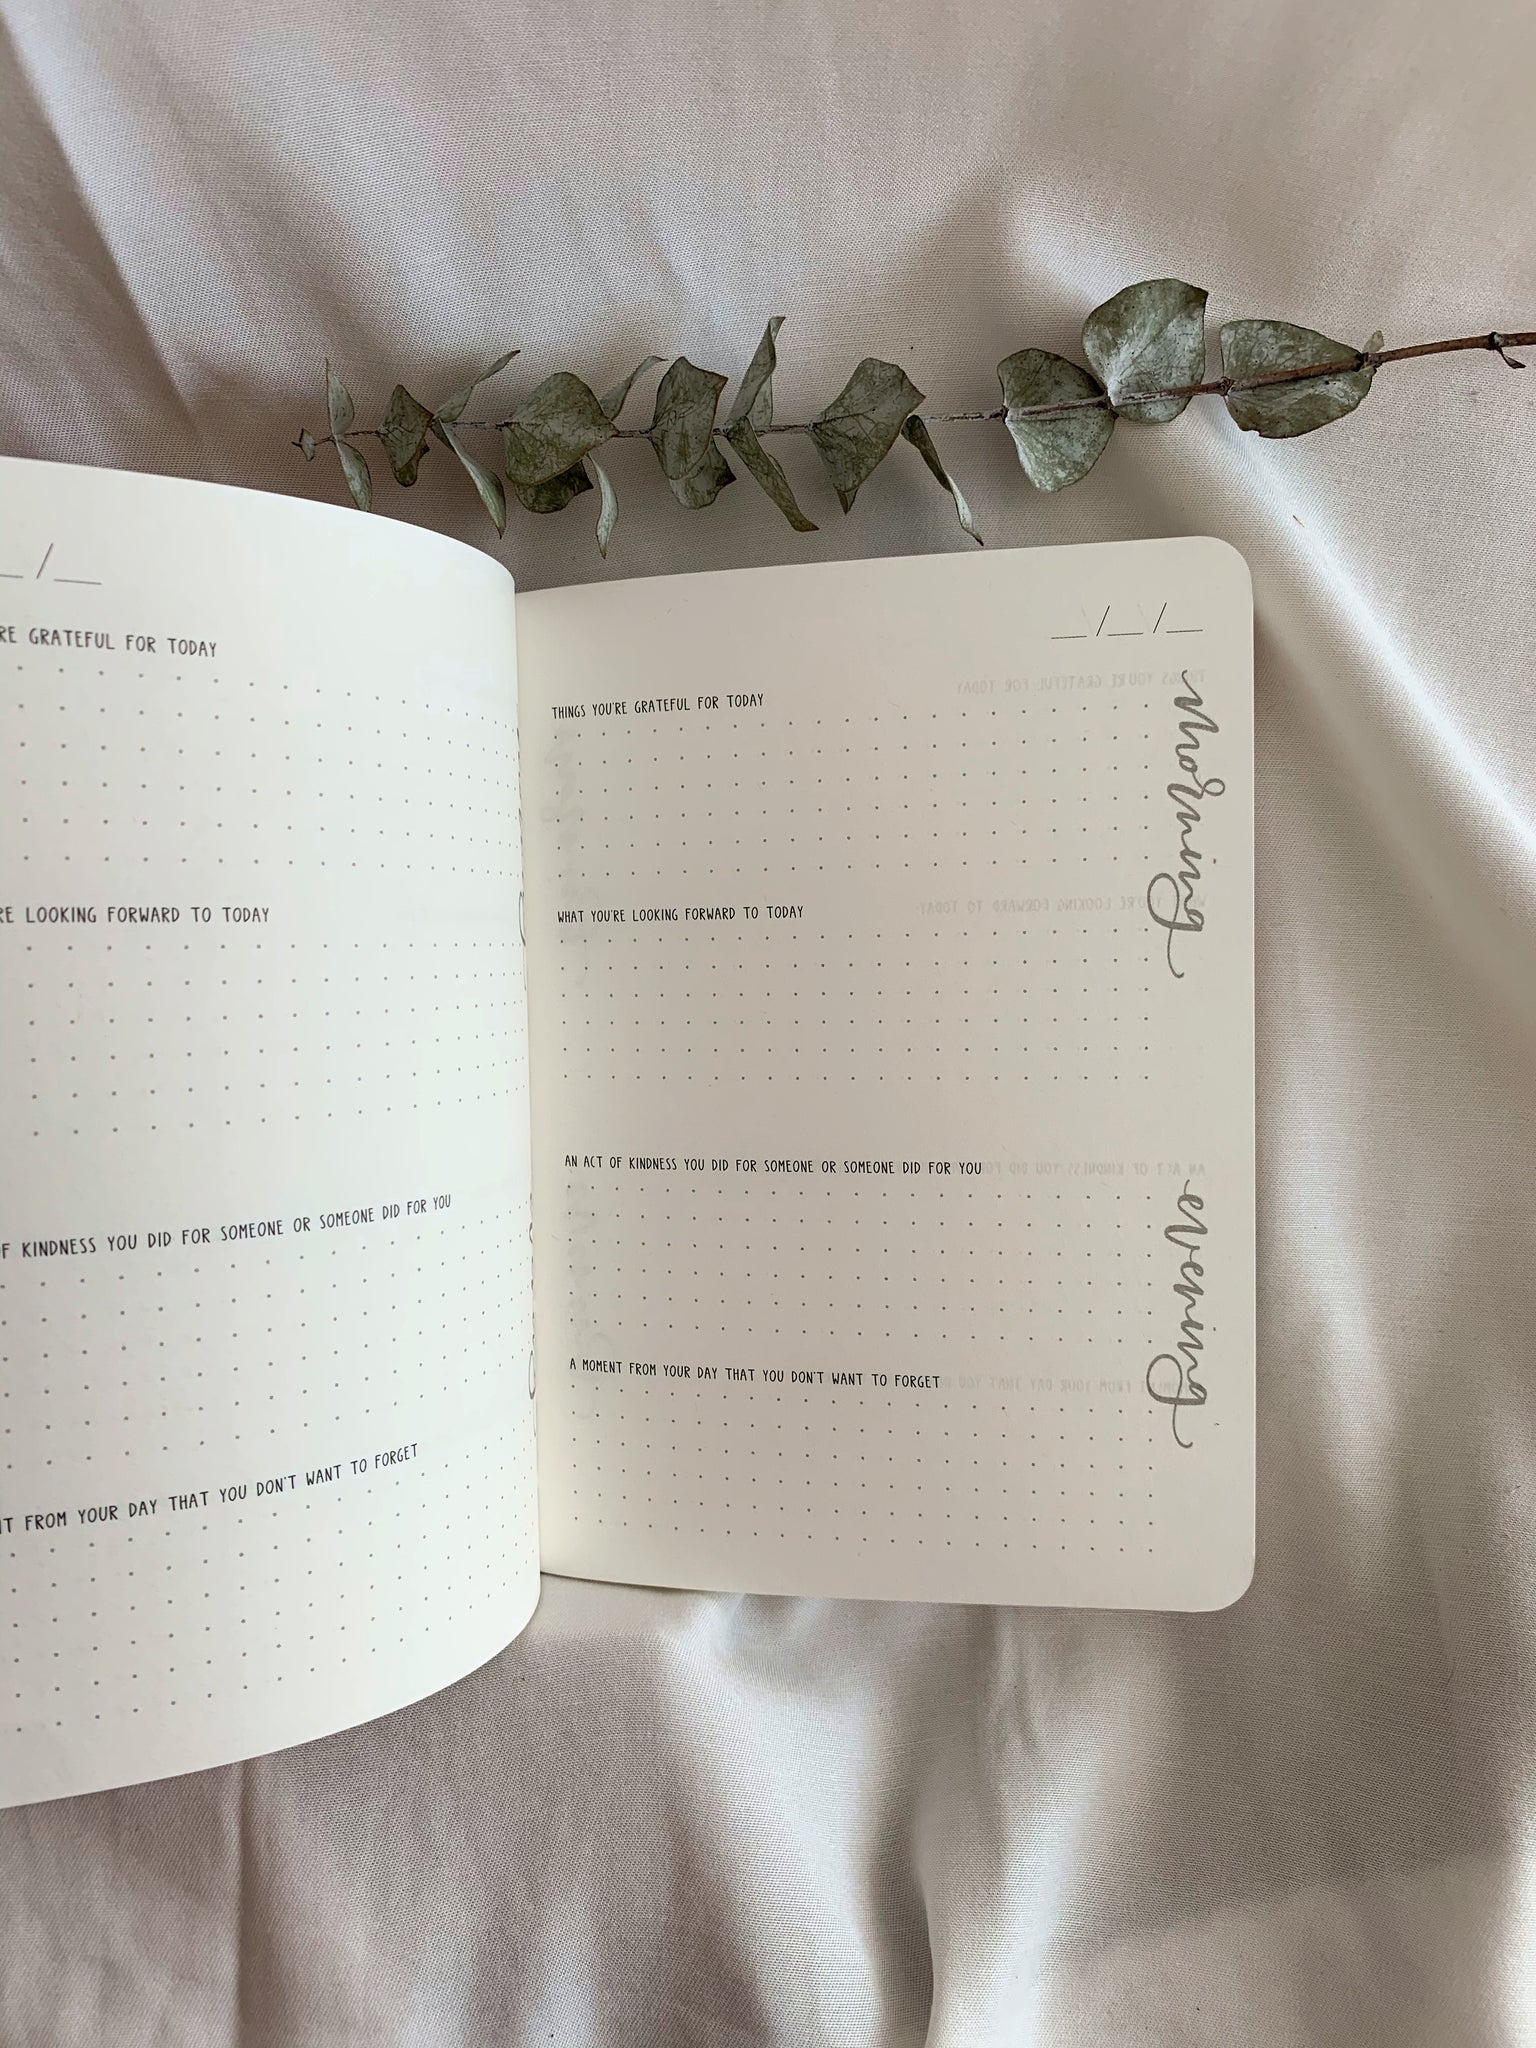 __/__
RE GRATEFUL FOR TODAY
RE LOOKING FORWARD TO TODAY
F KINDNESS YOU DID FOR SOMEONE OR SOMEONE DID FOR YOU
T FROM YOUR DAY THAT YOU DON'T WANT TO FORGET
__/__/__
morning
THINGS YOU'RE GRATEFUL FOR TODAY
WHAT YOU'RE LOOKING FORWARD TO TODAY
evening
AN ACT OF KINDNESS YOU DID FOR SOMEONE OR SOMEONE DID FOR YOU
A MOMENT FROM YOUR DAY THAT YOU DON'T WANT TO FORGET